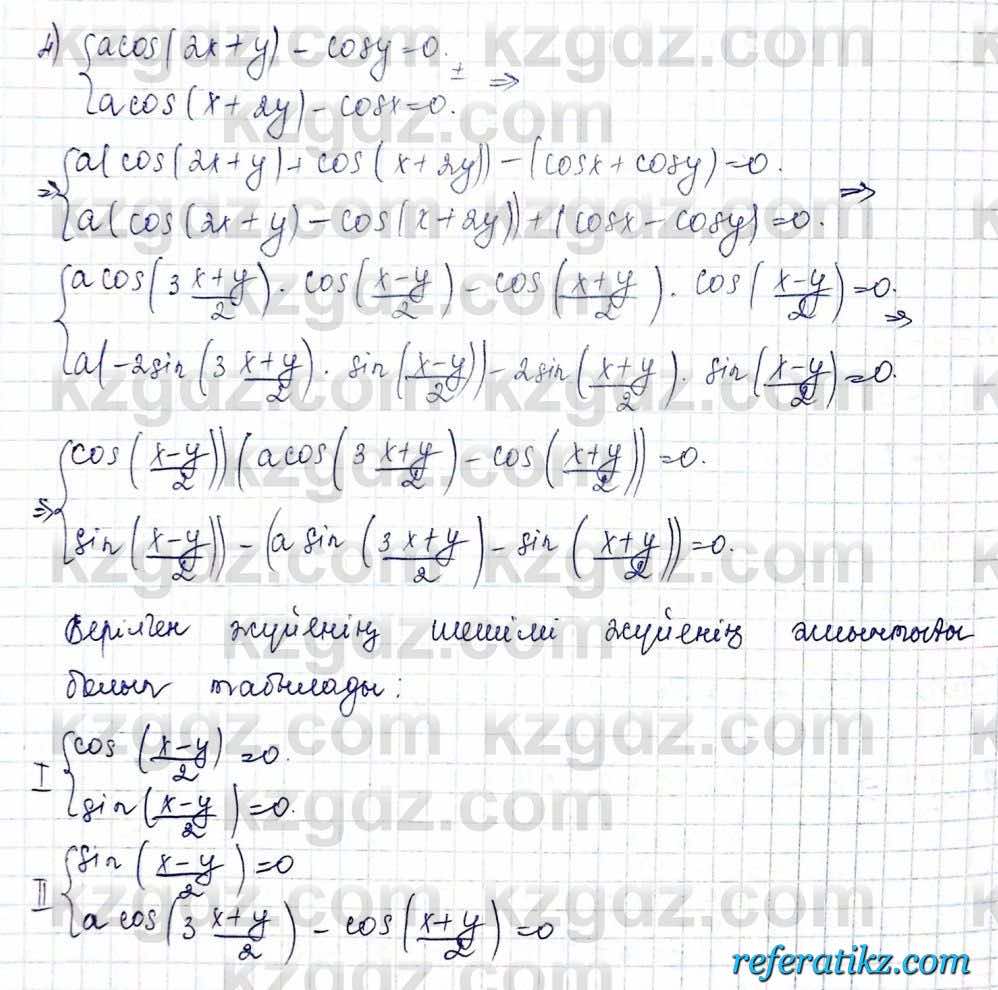 4) {acos(2x+y) - cosy=0.
{acos(x+2y) - cosx=0. ± ⇒
⇒ {a(cos(2x+y)+cos(x+2y)) - (cosx+cosy)=0.
{a(cos(2x+y) - cos(x+2y))+(cosx-cosy)=0. ⇒
{acos(3 x+y/2)· cos(x-y/2) - cos(x+y/2)· cos(x-y/2)=0.
{a(-2sin(3 x+y/2)· sin(x-y/2)) - 2sin(x+y/2)· sin(x-y/2)=0. ⇒
⇒ {cos(x-y/2))(acos(3 x+y/2) - cos(x+y/2))=0.
{sin(x-y/2)) - (a sin(3x+y/2) - sin(x+y/2))=0.
Берілген жүйенің шешімі жүйенің жиынтығы
болып табылады:
I {cos(x-y/2)=0.
{sin(x-y/2)=0.
II {sin(x-y/2)=0
{a cos(3 x+y/2) - cos(x+y/2)=0
kzgdz.com
referatikz.com